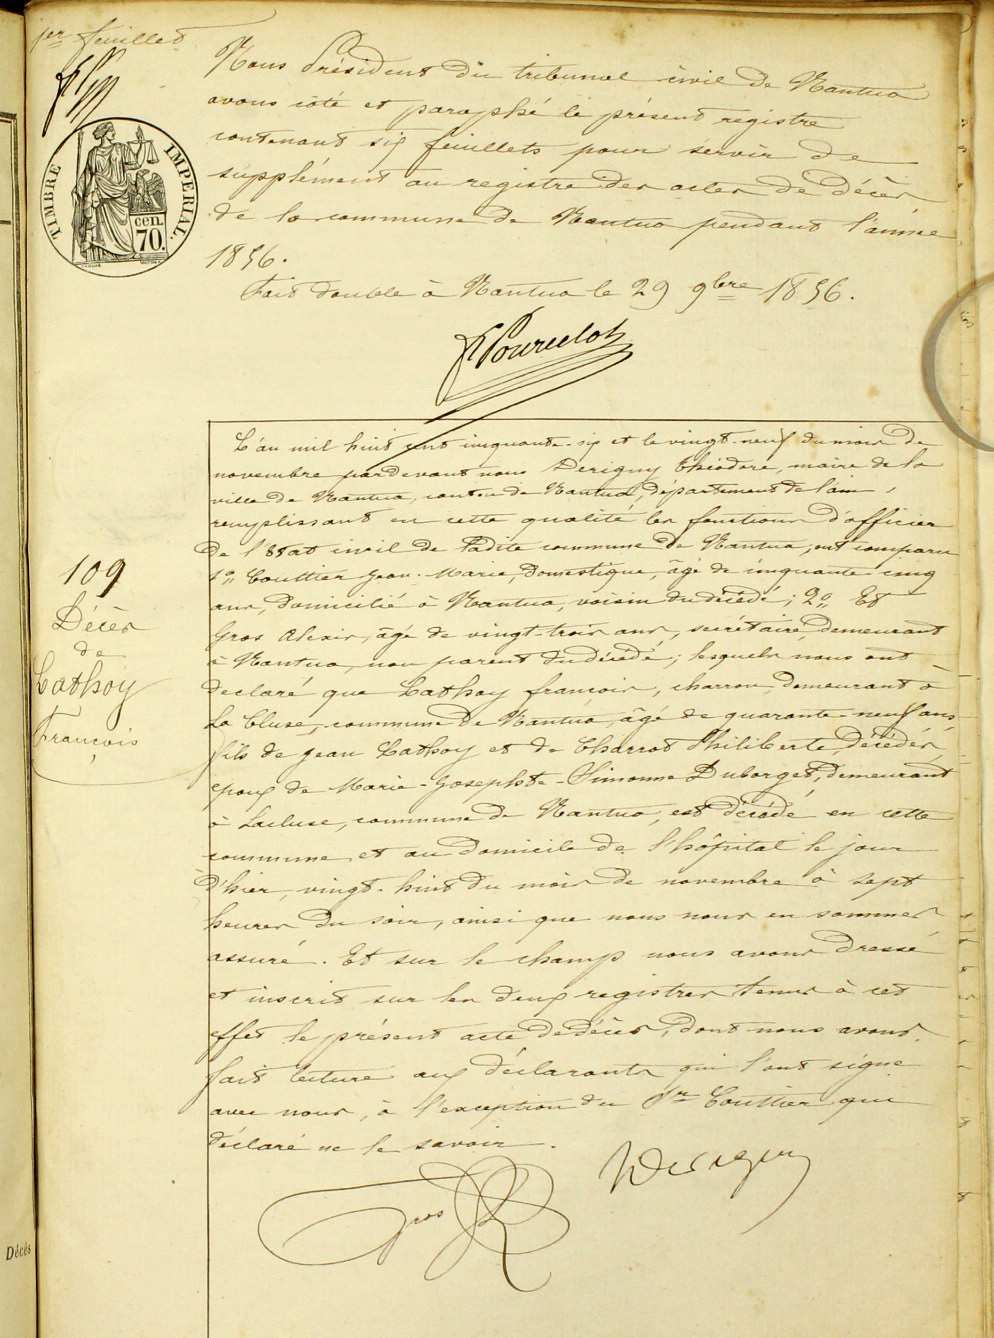 1er feuillet
TIMBRE IMPERIAL.
cen.
70.
Nous Président du tribunal civil de Nantua
avons coté et paraphé le présent registre
contenant six feuillets pour servir de
supplément au registre des actes de décès
de la commune de Nantua pendant l'année
1856.
Fait double à Nantua le 29 9bre 1856.
Pourcelot
109
Décès
de
Lathoy
François
L'an mil huit cent cinquante-six et le vingt-neuf du mois de
novembre pardevant nous Derigny théodore, maire de la
ville de Nantua, canton de Nantua, département de l'ain,
remplissant en cette qualité les fonctions d'officier
de l'état civil de ladite commune de Nantua, ont comparu
1o Couttier Jean-Marie, domestique, âgé de cinquante cinq
ans, domicilié à Nantua, voisin du décédé; 2o Et
Gros Alexis, âgé de vingt-trois ans, secrétaire, demeurant
à Nantua, non parent du décédé; lesquels nous ont
declaré que Lathoy francois, charron, demeurant à
La Cluse, commune de Nantua, âgé de quarante-neuf ans
fils de jean Lathoy et de Charrot Philiberte, décédés,
epoux de Marie-Josephte-Simonne Duborget, demeurant
à Lacluse, commune de Nantua, est décédé en cette
commune et au domicile de l'hôpital le jour
d'hier, vingt-huit du mois de novembre à sept
heures du soir, ainsi que nous nous en sommes
assuré. Et sur le champ nous avons dressé
et inscrit sur les deux registres tenus à cet
effet le présent acte de décès, dont nous avons
fait lecture aux déclarants qui l'ont signé
avec nous, à l'exception du Sr Couttier qui
déclaré ne le savoir.
Gros
Derigny
Décès